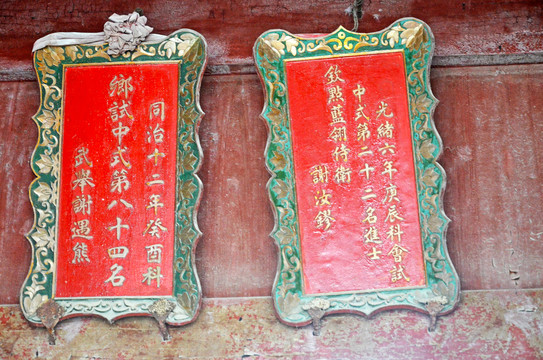 光緒六年庚辰科會試
中式第二十二名進士
欽點藍翎侍衛
謝汝鏐
同治十二年癸酉科
鄉試中式第八十四名
武舉謝遇熊